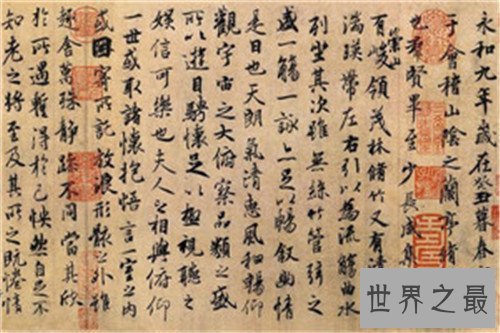 永和九年歲在癸丑暮春
于會稽山陰之蘭亭脩
也羣賢畢至少長咸集
有崇山峻領茂林脩竹又有清
湍暎帶左右引以為流觴曲水
列坐其次雖無絲竹管弦之
盛一觴一詠亦足以暢叙幽情
是日也天朗氣清惠風和暢仰
觀宇宙之大俯察品類之盛
所以遊目騁懷足以極視聽之
娛信可樂也夫人之相與俯仰
一世或取諸懷抱悟言一室之內
或因寄所託放浪形骸之外雖
趣舍萬殊靜躁不同當其欣
於所遇暫得於己怏然自足不
知老之將至及其所之既惓情
世界之最